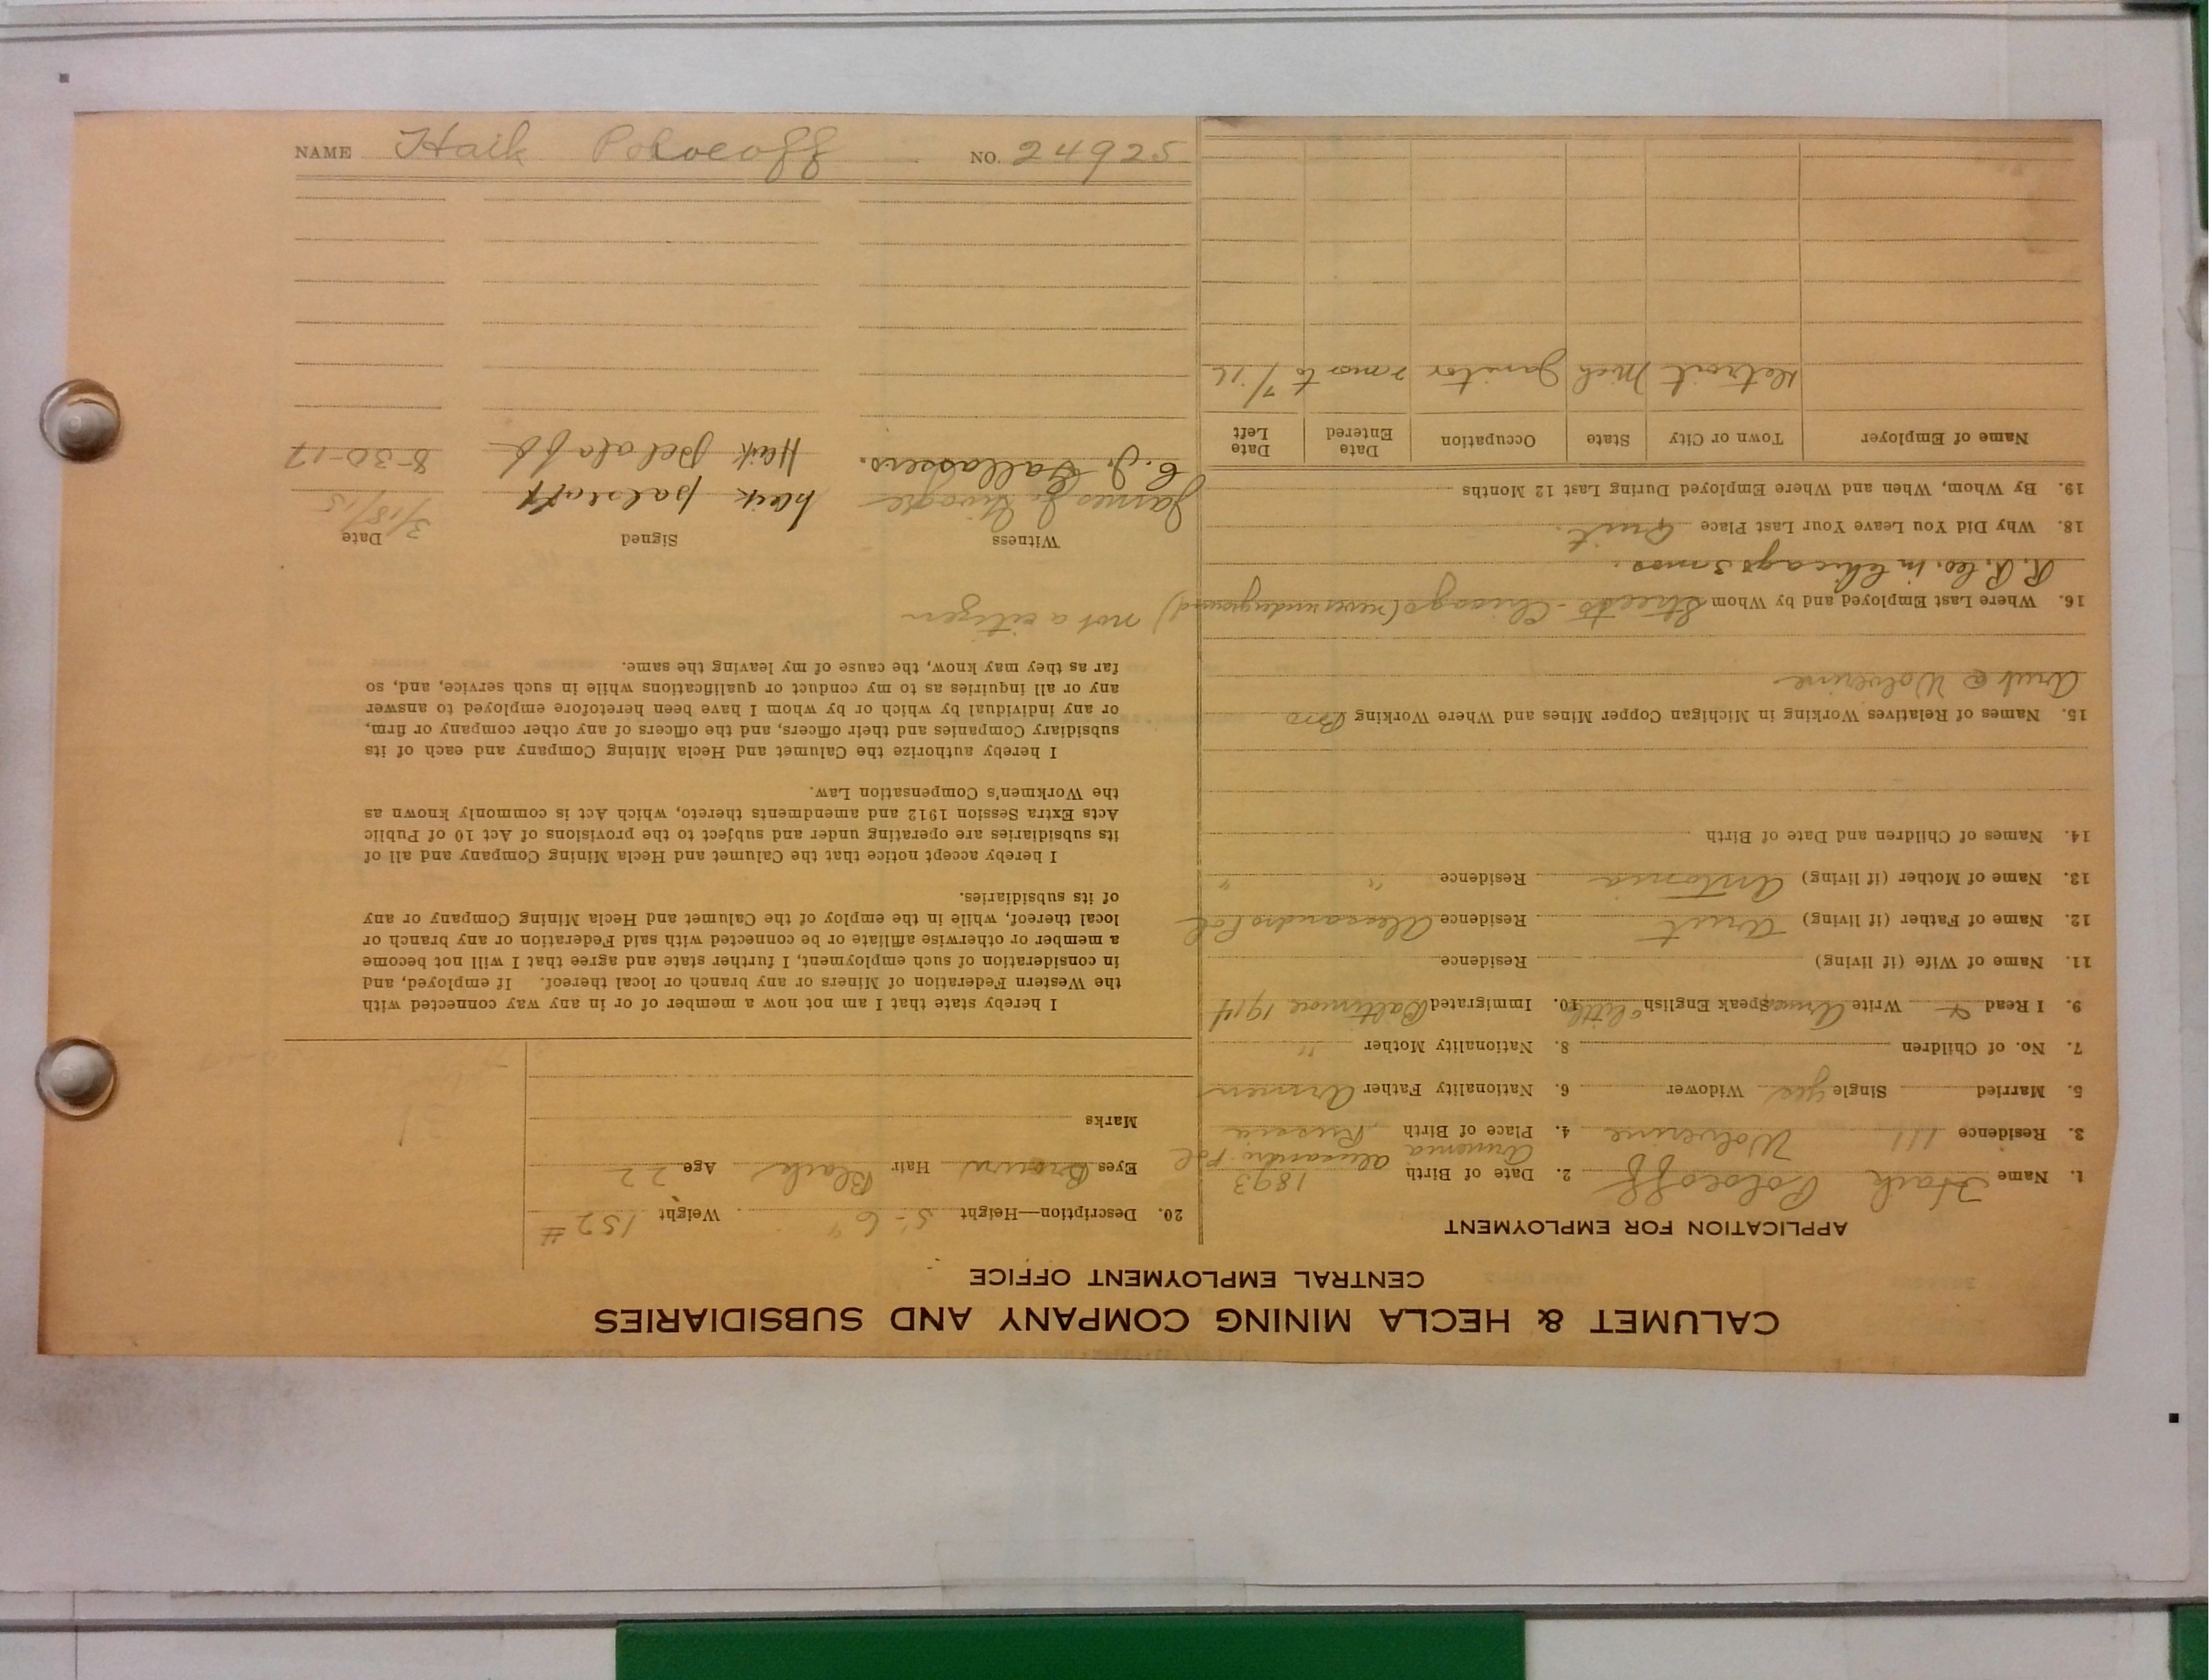 NAME Haik Poloeoff NO. 24925
CALUMET & HECLA MINING COMPANY AND SUBSIDIARIES
CENTRAL EMPLOYMENT OFFICE
APPLICATION FOR EMPLOYMENT
1. Name Haik Poloeoff 2. Date of Birth 1893
Armenia Alexandro Pol
3. Residence 111 Wolverine 4. Place of Birth Russia
5. Married Single yes Widower 6. Nationality Father Armen
7. No. of Children 8. Nationality Mother "
9. I Read & Write Armen Speak English little 10. Immigrated Baltimore 1914
11. Name of Wife (if living) Residence
12. Name of Father (if living) Residence Alexandro Pol
13. Name of Mother (if living) Residence " "
14. Names of Children and Date of Birth
15. Names of Relatives Working in Michigan Copper Mines and Where Working Bro
@ Wolverine
16. Where Last Employed and by Whom Streets - Chicago (never underground) not a citizen
R. R. Co. in Chicago 3 mos.
18. Why Did You Leave Your Last Place Quit.
19. By Whom, When and Where Employed During Last 12 Months
Name of Employer Town or City State Occupation Date Entered Date Left
Detroit Mich Janitor 2 mos to
20. Description—Height 5'-6" Weight 152#
Eyes Brown Hair Black Age 22
Marks
I hereby state that I am not now a member of or in any way connected with
the Western Federation of Miners or any branch or local thereof. If employed, and
in consideration of such employment, I further state and agree that I will not become
a member or otherwise affiliate or be connected with said Federation or any branch or
local thereof, while in the employ of the Calumet and Hecla Mining Company or any
of its subsidiaries.
I hereby accept notice that the Calumet and Hecla Mining Company and all of
its subsidiaries are operating under and subject to the provisions of Act 10 of Public
Acts Extra Session 1912 and amendments thereto, which Act is commonly known as
the Workmen's Compensation Law.
I hereby authorize the Calumet and Hecla Mining Company and each of its
subsidiary Companies and their officers, and the officers of any other company or firm,
or any individual by which or by whom I have been heretofore employed to answer
any or all inquiries as to my conduct or qualifications while in such service, and, so
far as they may know, the cause of my leaving the same.
Witness Signed Date
James 3/15/15
Haik 8-30-17